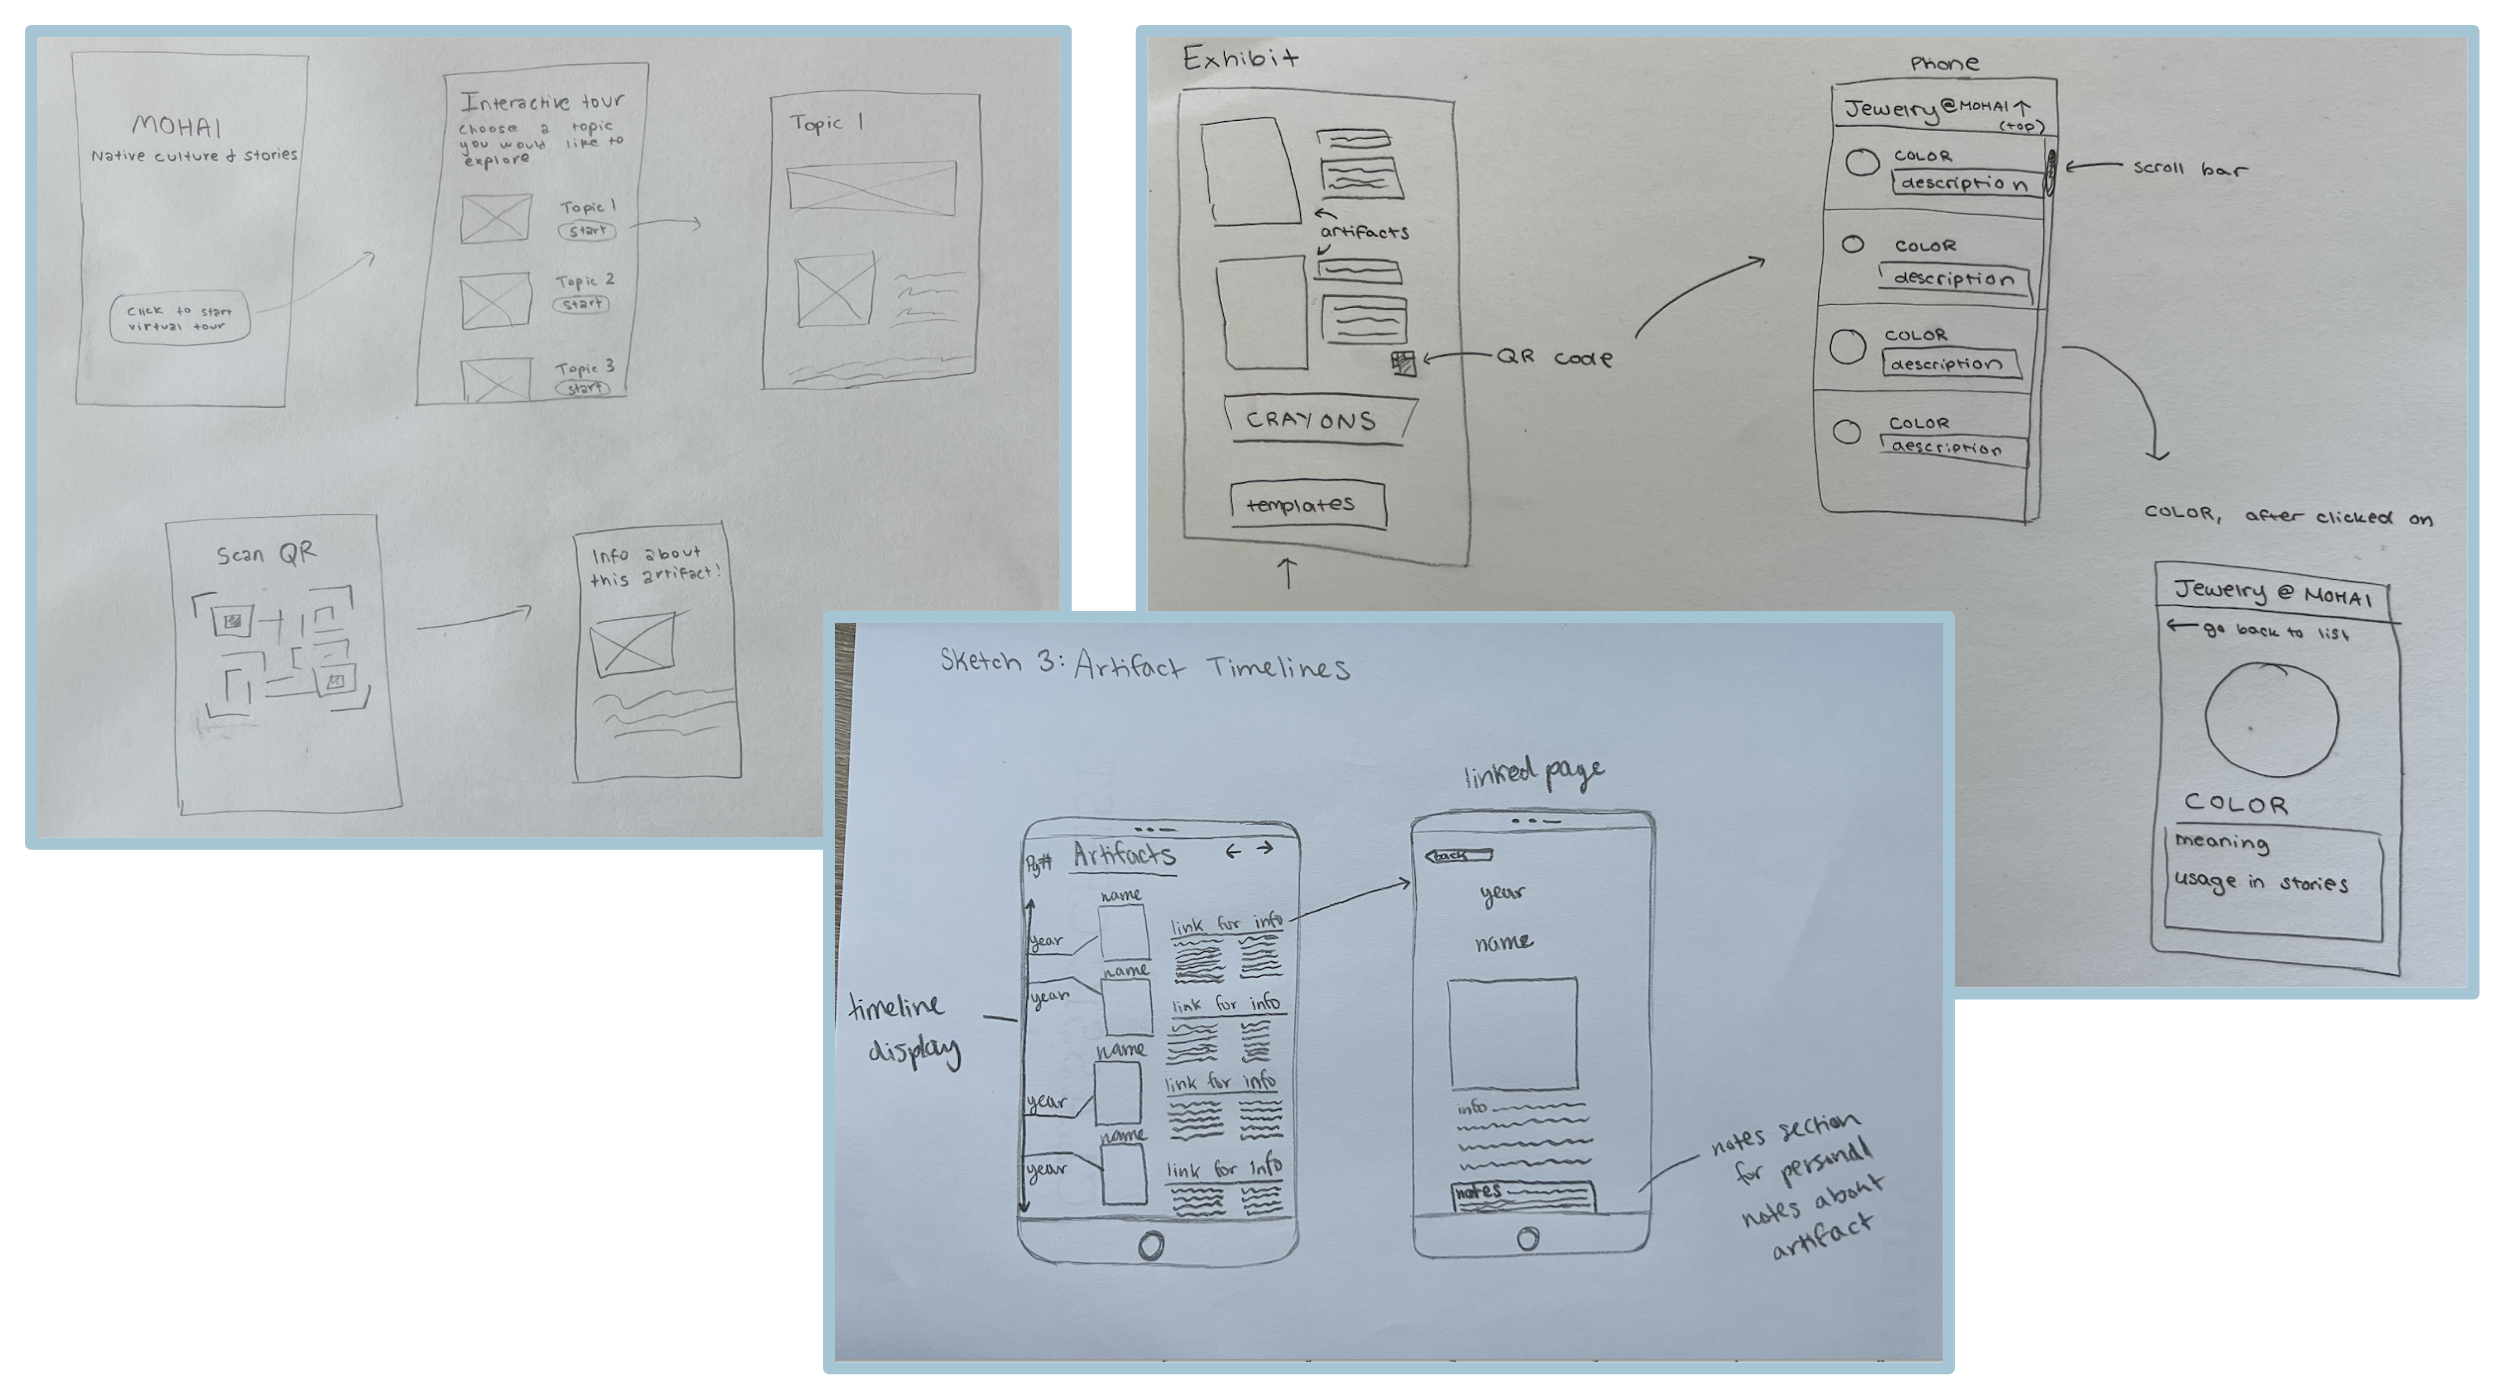 MOHAI
Native culture & stories
Click to start
virtual tour
Interactive tour
Choose a topic
you would like to
explore
Topic 1
start
Topic 2
start
Topic 3
start
Topic 1
Scan QR
Info about
this artifact!
Exhibit
artifacts
QR code
CRAYONS
templates
Phone
Jewelry @ MOHAI ↑
(top)
COLOR
description
COLOR
description
COLOR
description
COLOR
description
scroll bar
COLOR, after clicked on
Jewelry @ MOHAI
← go back to list
COLOR
meaning
usage in stories
Sketch 3: Artifact Timelines
Pg# Artifacts ← →
name
year
link for info
name
year
link for info
name
year
link for info
name
year
link for info
timeline
display
linked page
back
year
name
info
notes
notes section
for personal
notes about
artifact